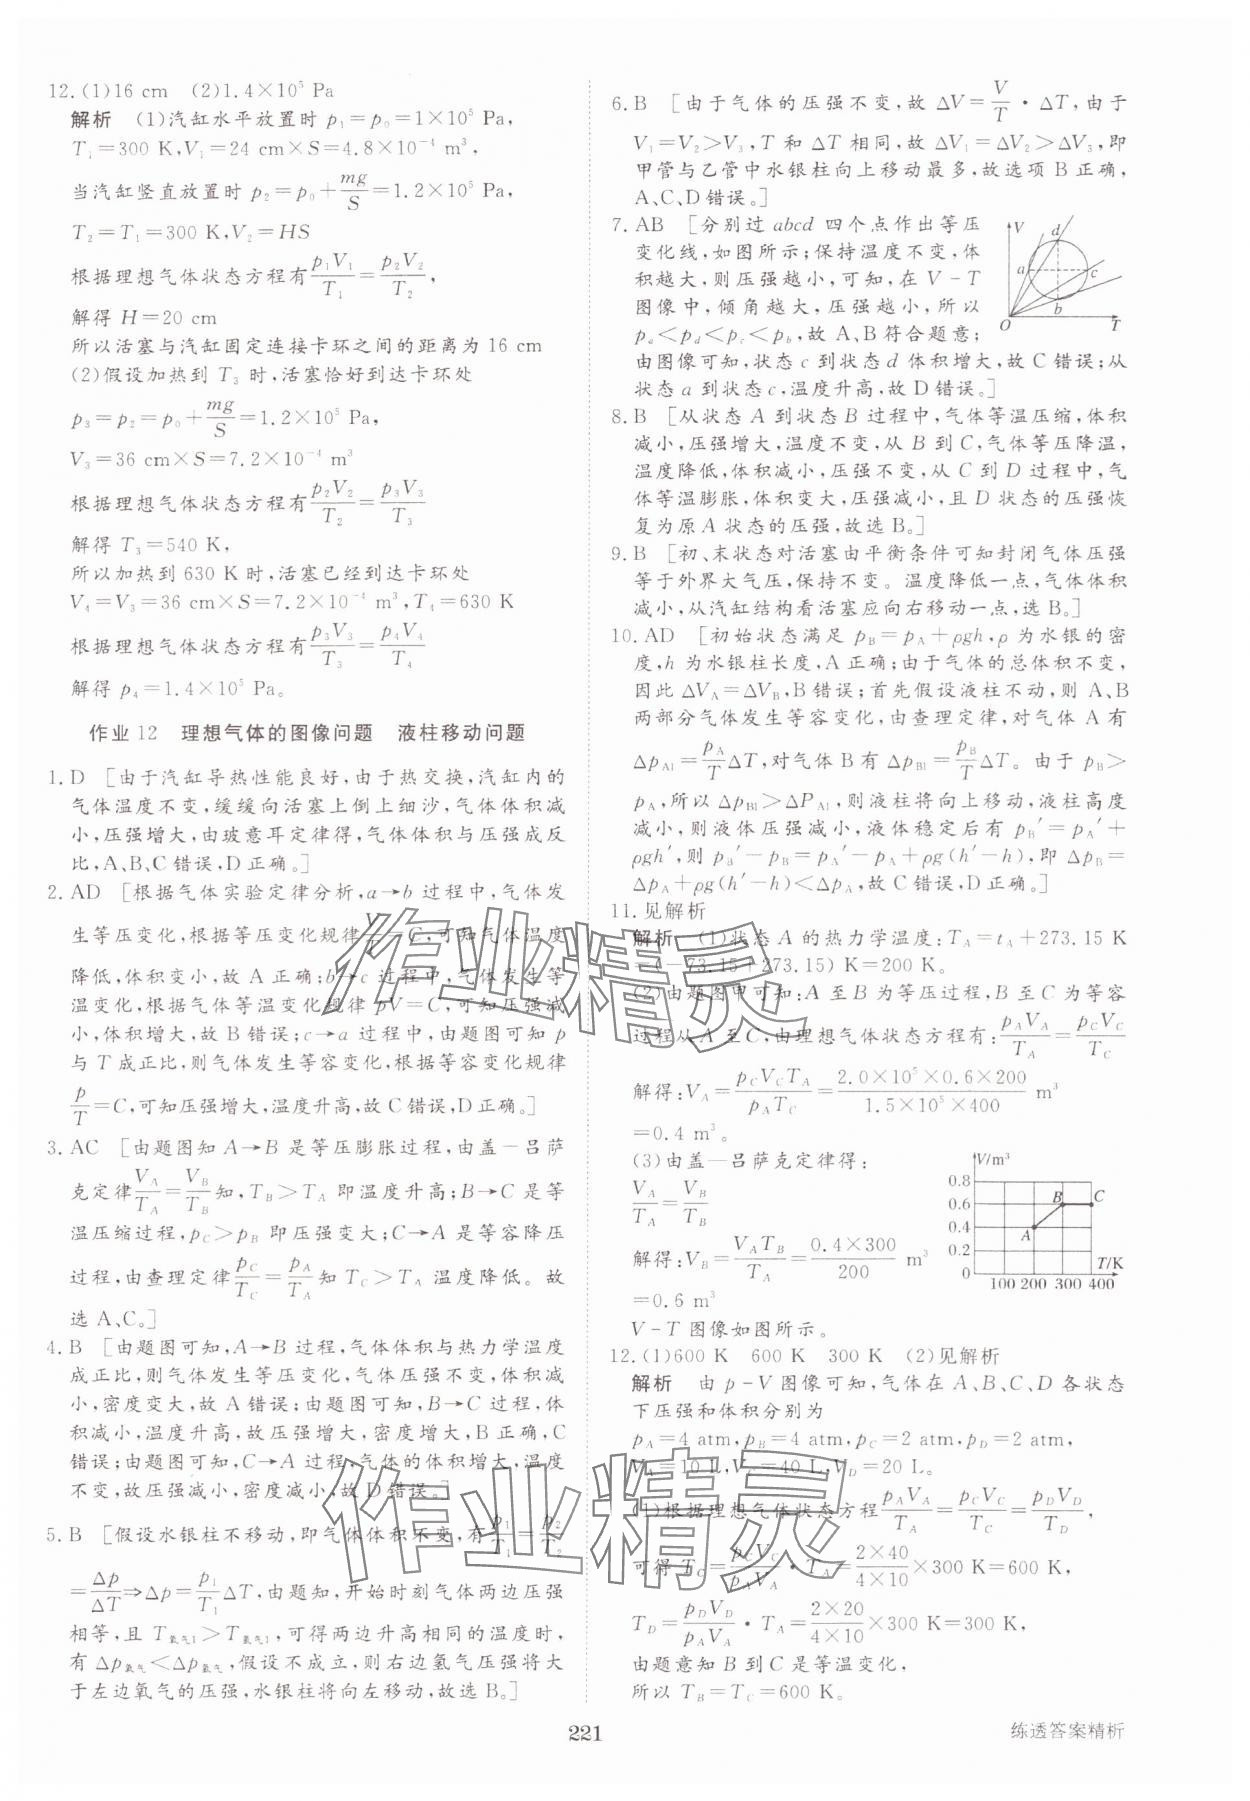 12.(1)16 cm (2)1.4×10⁵ Pa
解析 (1)汽缸水平放置时 p₁=p₀=1×10⁵ Pa,
T₁=300 K,V₁=24 cm×S=4.8×10⁻⁴ m³,
当汽缸竖直放置时 p₂=p₀+mg/S=1.2×10⁵ Pa,
T₂=T₁=300 K,V₂=HS
根据理想气体状态方程有p₁V₁/T₁=p₂V₂/T₂,
解得 H=20 cm
所以活塞与汽缸固定连接卡环之间的距离为 16 cm
(2)假设加热到 T₃ 时,活塞恰好到达卡环处
p₃=p₂=p₀+mg/S=1.2×10⁵ Pa,
V₃=36 cm×S=7.2×10⁻⁴ m³
根据理想气体状态方程有p₂V₂/T₂=p₃V₃/T₃
解得 T₃=540 K,
所以加热到 630 K 时,活塞已经到达卡环处
V₄=V₃=36 cm×S=7.2×10⁻⁴ m³,T₄=630 K
根据理想气体状态方程有p₃V₃/T₃=p₄V₄/T₄
解得 p₄=1.4×10⁵ Pa。
作业 12 理想气体的图像问题 液柱移动问题
1.D [由于汽缸导热性能良好,由于热交换,汽缸内的
气体温度不变,缓缓向活塞上倒上细沙,气体体积减
小,压强增大,由玻意耳定律得,气体体积与压强成反
比,A、B、C错误,D正确。]
2.AD [根据气体实验定律分析,a→b 过程中,气体发
生等压变化,根据等压变化规律V/T=C,可知气体温度
降低,体积变小,故 A 正确;b→c 过程中,气体发生等
温变化,根据气体等温变化规律 pV=C,可知压强减
小,体积增大,故 B 错误;c→a 过程中,由题图可知 p
与 T 成正比,则气体发生等容变化,根据等容变化规律
p/T=C,可知压强增大,温度升高,故 C 错误,D正确。]
3.AC [由题图知 A→B 是等压膨胀过程,由盖-吕萨
克定律V_A/T_A=V_B/T_B知,T_B>T_A 即温度升高;B→C 是等
温压缩过程,p_C>p_B 即压强变大;C→A 是等容降压
过程,由查理定律p_C/T_C=p_A/T_A知 T_C>T_A 温度降低。故
选 A、C。]
4.B [由题图可知,A→B 过程,气体体积与热力学温度
成正比,则气体发生等压变化,气体压强不变,体积减
小,密度变大,故 A 错误;由题图可知,B→C 过程,体
积减小,温度升高,故压强增大,密度增大,B正确,C
错误;由题图可知,C→A 过程,气体的体积增大,温度
不变,故压强减小,密度减小,故 D 错误。]
5.B [假设水银柱不移动,即气体体积不变,有p₁/T₁=p₂/T₂
=Δp/ΔT⇒Δp=p₁/T₁ΔT,由题知,开始时刻气体两边压强
相等,且 T氧气1>T氢气1,可得两边升高相同的温度时,
有 Δp氧气<Δp氢气,假设不成立,则右边氢气压强将大
于左边氧气的压强,水银柱将向左移动,故选B。]
6.B [由于气体的压强不变,故 ΔV=V/T·ΔT,由于
V₁=V₂>V₃,T 和 ΔT 相同,故 ΔV₁=ΔV₂>ΔV₃,即
甲管与乙管中水银柱向上移动最多,故选项 B 正确,
A、C、D错误。]
7.AB [分别过 abcd 四个点作出等压
变化线,如图所示;保持温度不变,体
积越大,则压强越小,可知,在 V-T
图像中,倾角越大,压强越小,所以
p_a<p_d<p_c<p_b,故 A、B符合题意;
由图像可知,状态 c 到状态 d 体积增大,故 C 错误;从
状态 a 到状态 c,温度升高,故 D 错误。]
V
d
a
c
b
O
T
8.B [从状态 A 到状态 B 过程中,气体等温压缩,体积
减小,压强增大,温度不变,从 B 到 C,气体等压降温,
温度降低,体积减小,压强不变,从 C 到 D 过程中,气
体等温膨胀,体积变大,压强减小,且 D 状态的压强恢
复为原A 状态的压强,故选 B。]
9.B [初、末状态对活塞由平衡条件可知封闭气体压强
等于外界大气压,保持不变。温度降低一点,气体体积
减小,从汽缸结构看活塞应向右移动一点,选 B。]
10.AD [初始状态满足 p_B=p_A+ρgh,ρ 为水银的密
度,h 为水银柱长度,A正确;由于气体的总体积不变,
因此 ΔV_A=ΔV_B,B错误;首先假设液柱不动,则 A、B
两部分气体发生等容变化,由查理定律,对气体 A 有
Δp_A1=p_A/TΔT,对气体 B 有 Δp_B1=p_B/TΔT。由于 p_B>
p_A,所以 Δp_B1>ΔP_A1,则液柱将向上移动,液柱高度
减小,则液体压强减小,液体稳定后有 p_B′=p_A′+
ρgh′,则 p_B′-p_B=p_A′-p_A+ρg(h′-h),即 Δp_B=
Δp_A+ρg(h′-h)<Δp_A,故 C错误,D正确。]
11.见解析
解析 (1)状态 A 的热力学温度:T_A=t_A+273.15 K
=(-73.15+273.15) K=200 K。
(2)由题图甲可知:A 至B 为等压过程,B 至 C 为等容
过程从 A 至C,由理想气体状态方程有:p_AV_A/T_A=p_CV_C/T_C
解得:V_A=p_CV_CT_A/p_AT_C=2.0×10⁵×0.6×200/1.5×10⁵×400 m³
=0.4 m³。
(3)由盖-吕萨克定律得:
V_A/T_A=V_B/T_B
解得:V_B=V_AT_B/T_A=0.4×300/200 m³
=0.6 m³
V-T 图像如图所示。
V/m³
0.8
0.6
0.4
0.2
0
B
C
A
T/K
100 200 300 400
12.(1)600 K 600 K 300 K (2)见解析
解析 由 p-V 图像可知,气体在 A、B、C、D 各状态
下压强和体积分别为
p_A=4 atm,p_B=4 atm,p_C=2 atm,p_D=2 atm,
V_A=10 L,V_C=40 L,V_D=20 L。
(1)根据理想气体状态方程p_AV_A/T_A=p_CV_C/T_C=p_DV_D/T_D,
可得 T_C=p_CV_C/p_AV_A·T_A=2×40/4×10×300 K=600 K,
T_D=p_DV_D/p_AV_A·T_A=2×20/4×10×300 K=300 K,
由题意知 B 到 C 是等温变化,
所以 T_B=T_C=600 K.
221
练透答案精析
作业精灵
作业精灵